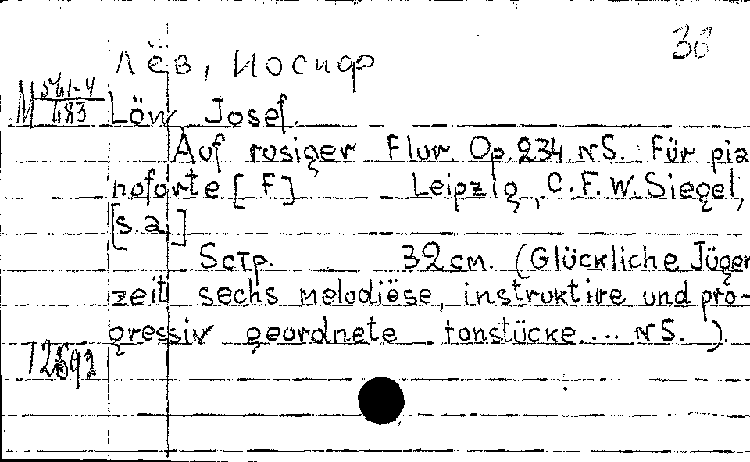 30
Лёв, Иосиф
М 561-4
483
Löw Josef.
Auf rosiger Flur. Op. 234 №5. Für pia
noforte [F] Leipzig, C.F.W. Siegel,
[s.a.]
5стр. 32см. (Glückliche Jügen
zeit sechs melodiëse, instruktive und pro-
gressiv geordnete tonstücke.... №5.).